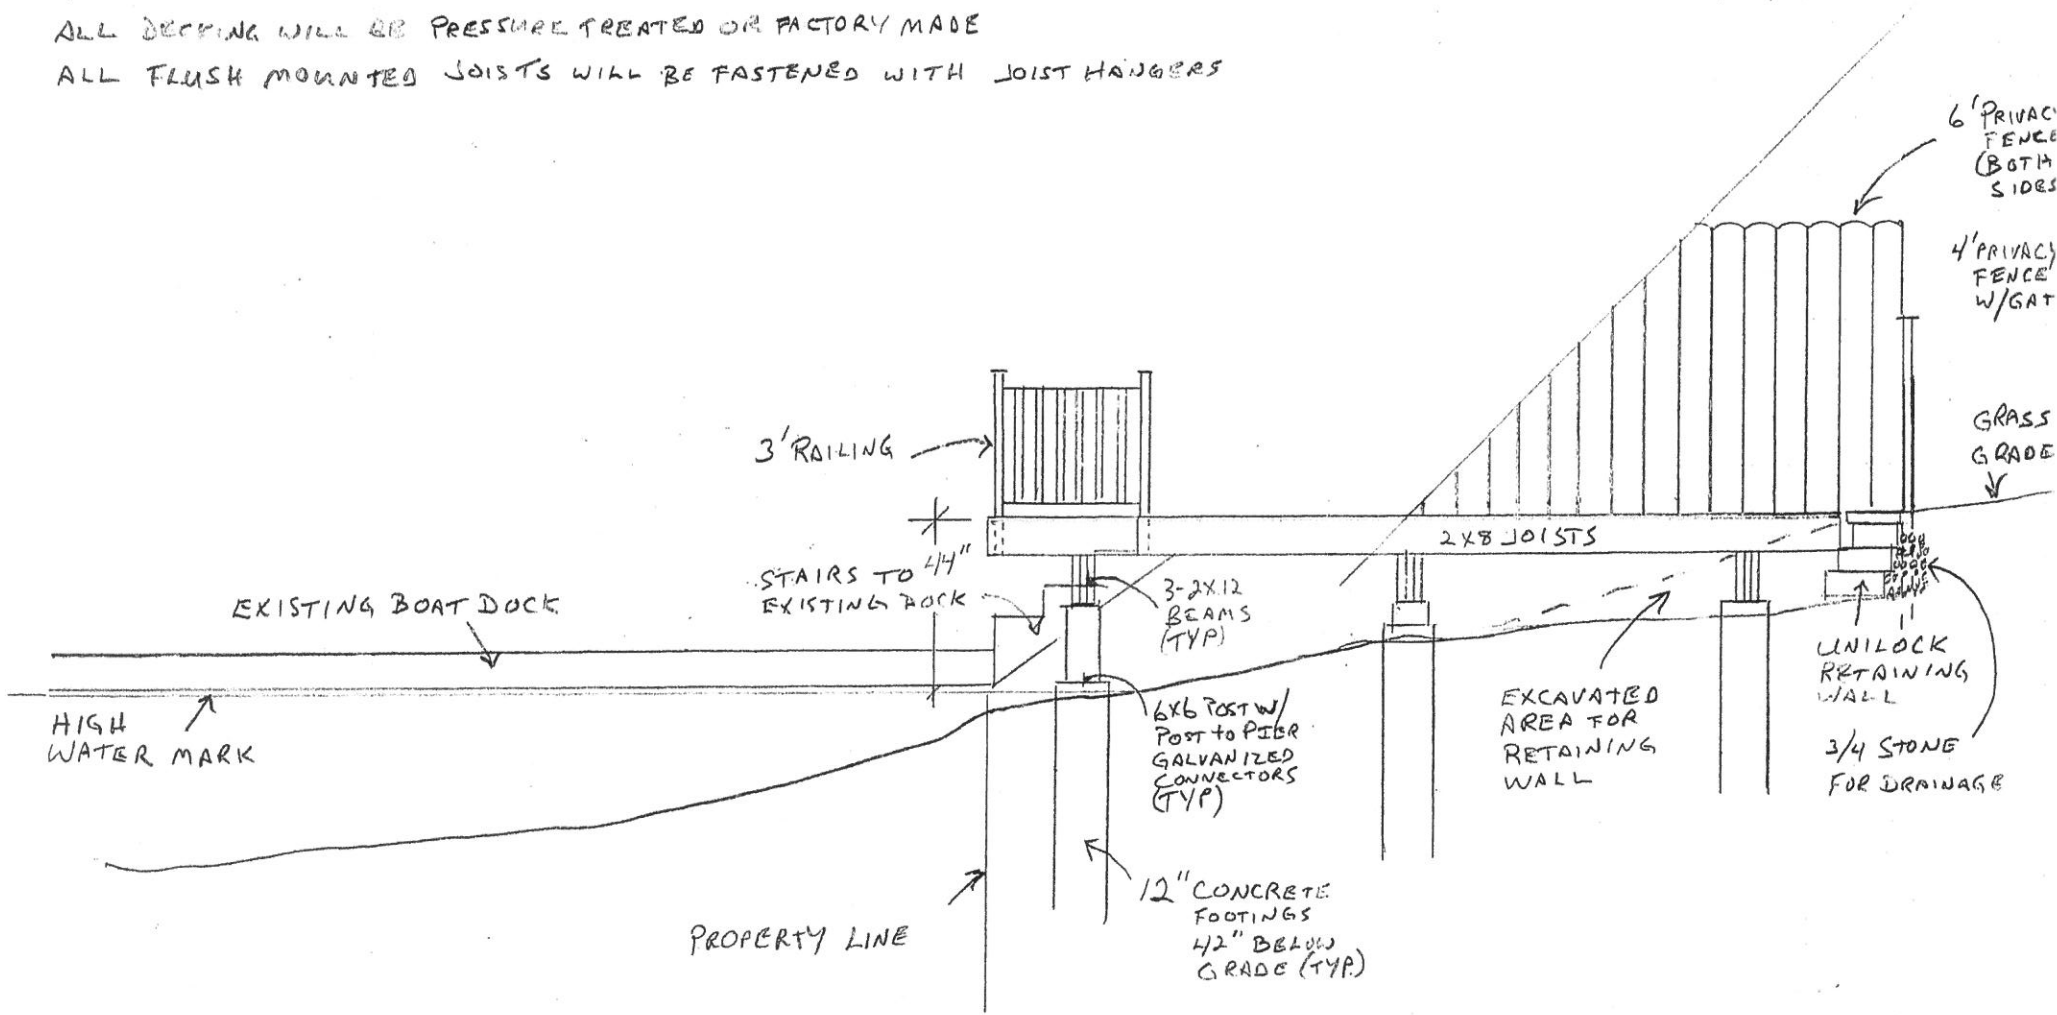 ALL DECKING WILL BE PRESSURE TREATED OR FACTORY MADE
ALL FLUSH MOUNTED JOISTS WILL BE FASTENED WITH JOIST HANGERS
6' PRIVACY
FENCE
(BOTH
SIDES
4' PRIVACY
FENCE
W/GAT
GRASS
GRADE
3' RAILING
2X8 JOISTS
44"
STAIRS TO
EXISTING DOCK
EXISTING BOAT DOCK
3-2X12
BEAMS
(TYP)
HIGH
WATER MARK
6X6 POST W/
POST TO PIER
GALVANIZED
CONNECTORS
(TYP)
EXCAVATED
AREA FOR
RETAINING
WALL
UNILOCK
RETAINING
WALL
3/4 STONE
FOR DRAINAGE
PROPERTY LINE
12" CONCRETE
FOOTINGS
42" BELOW
GRADE (TYP.)